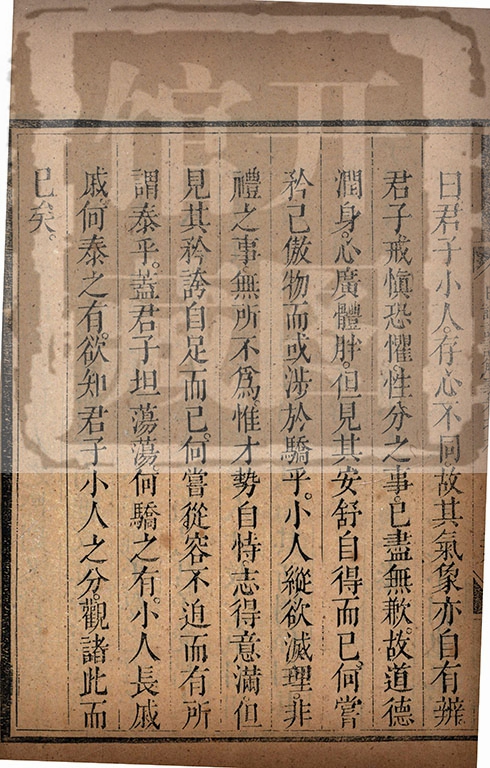 曰君子小人。存心不同。故其氣象亦自有辨
君子戒慎恐懼。性分之事。已盡無歉。故道德
潤身。心廣體胖。但見其安舒自得而已。何嘗
矜己傲物。而或涉於驕乎。小人縱欲滅理。非
禮之事。無所不為。惟才勢自恃。志得意滿。但
見其矜誇自足而已。何嘗從容不迫。而有所
謂泰乎。蓋君子坦蕩蕩。何驕之有。小人長戚
戚。何泰之有。欲知君子小人之分。觀諸此而
已矣。